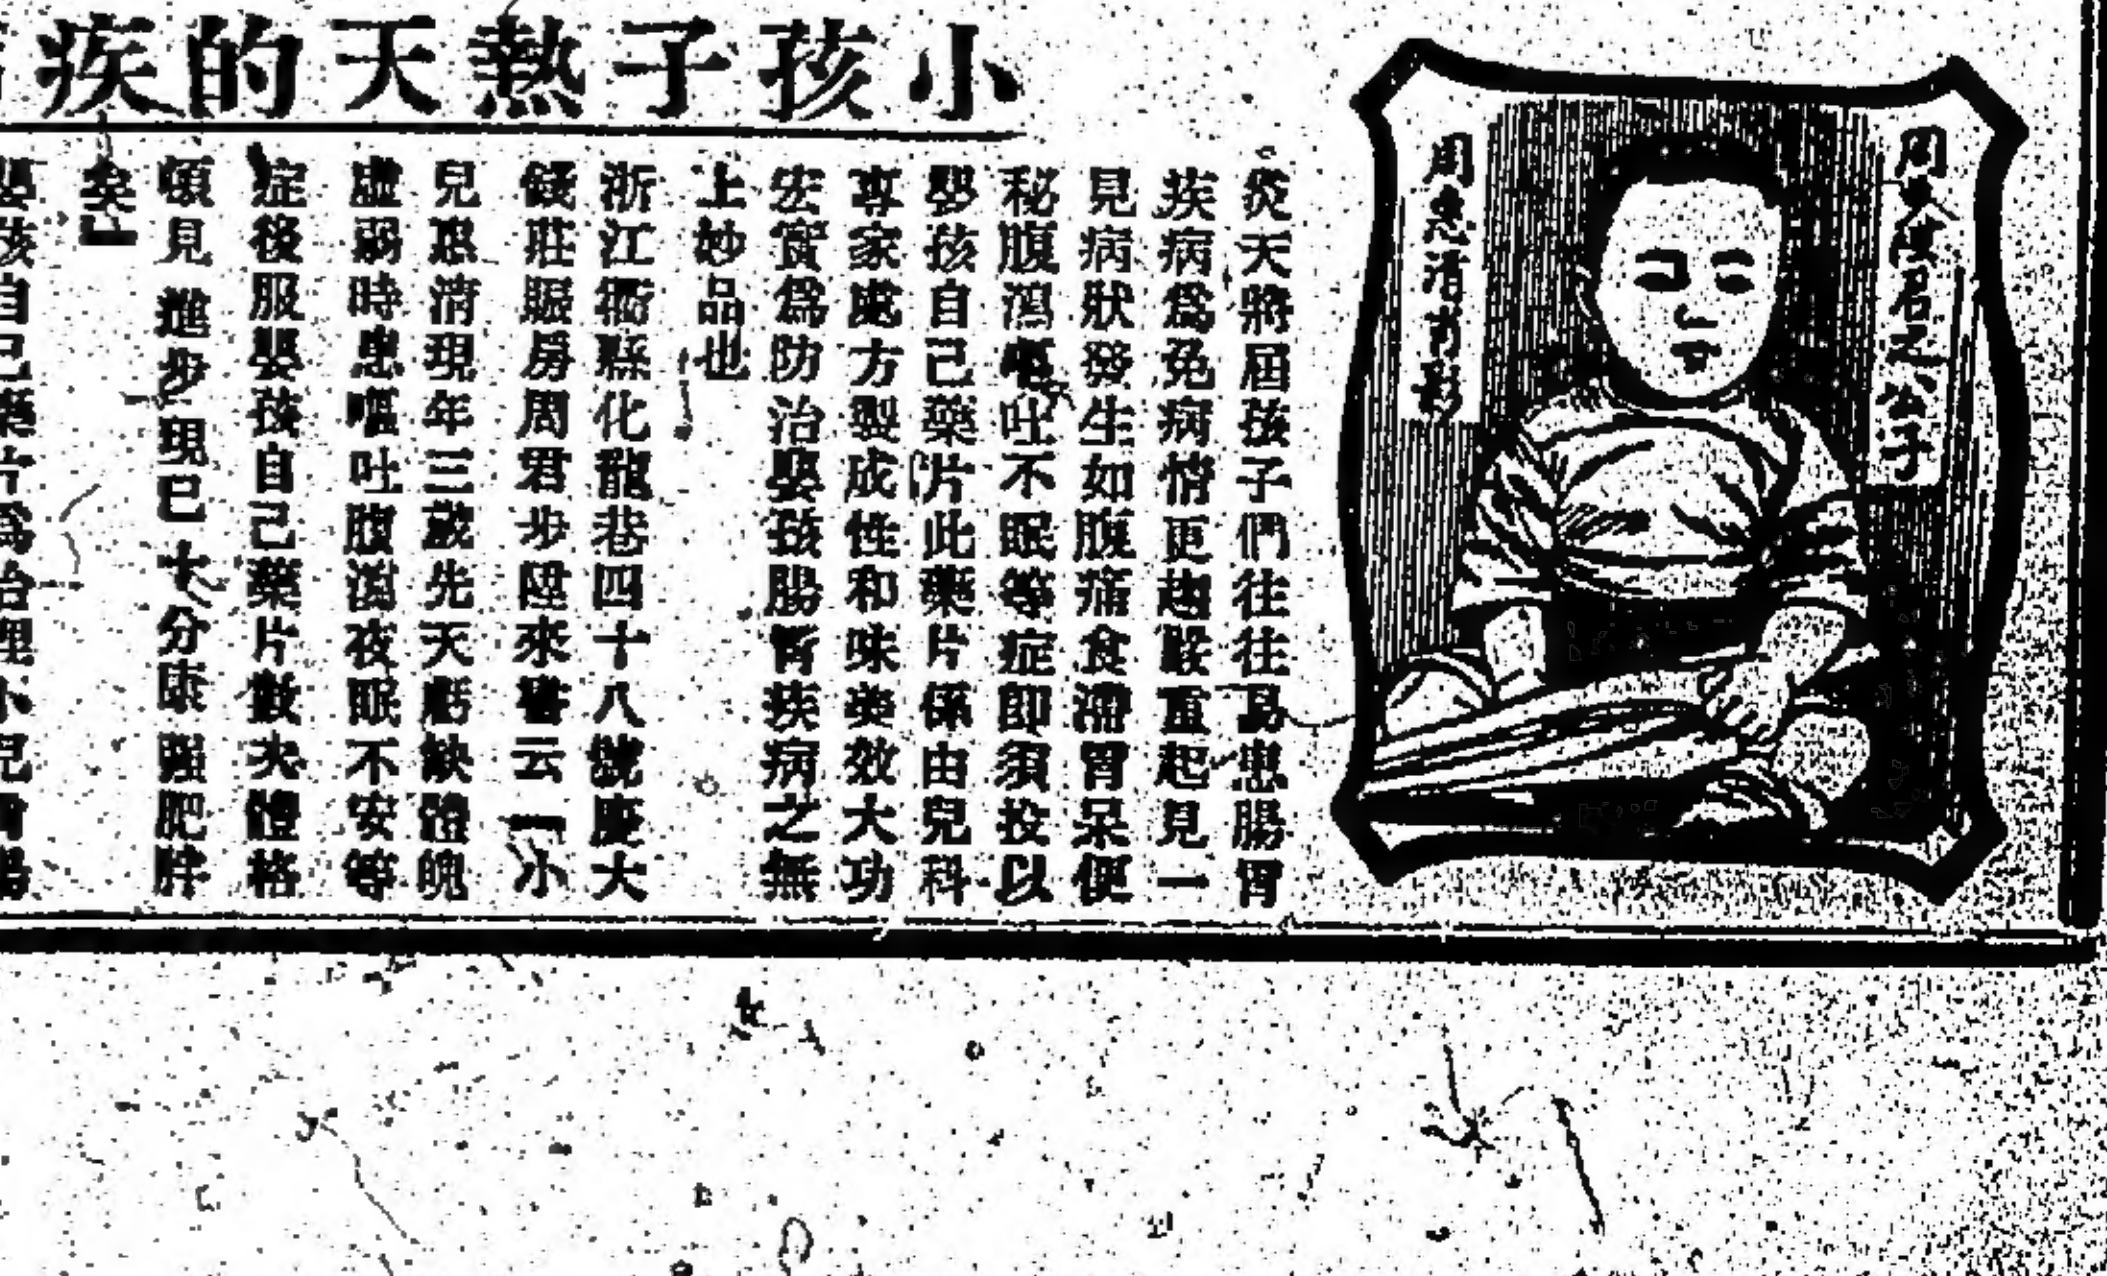 小孩子熱天的疾
周君之公子
周惠清肖影
炎天將屆孩子們往往易患腸胃
疾病爲免病情更趨嚴重起見一
見病狀發生如腹痛食滯胃呆便
秘腹瀉嘔吐不眠等症卽須投以
嬰孩自己藥片此藥片係由兒科
專家處方製成性和味美效大功
宏實爲防治嬰孩腸胃疾病之無
上妙品也
浙江衢縣化龍巷四十八號慶大
錢莊賬房周君步陞來書云「小
兒惠清現年三歲先天虧缺體魄
虛弱時患嘔吐腹瀉夜眠不安等
症後服嬰孩自己藥片數次體格
頓見進步現已十分康強肥胖
矣」
嬰孩自己藥片爲治理小兒胃腸